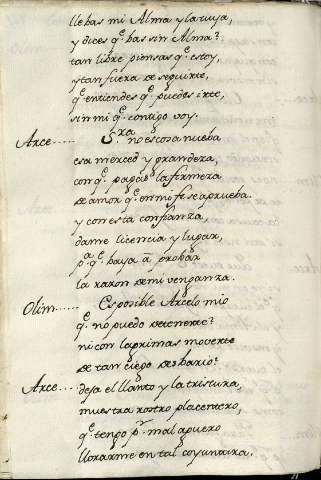 llebas mi Alma y la tuya,
y dices q̃. bas sin Alma?
tan libre piensas q̃. estoy,
y tan fuera de seguirte,
q̃. entiendes q̃. puedes irte,
sin mi q̃. contigo voy.
Arce..... S.ra no es cosa nueba
esa merced y grandeza,
con q̃. pagas la firmeza
de amor q̃. en mi fe se aprueba.
y con esta confianza,
dame licencia y lugar,
p.a q̃. baya a probar
la razon de mi venganza.
Olim..... Es posible Arcelo mio
q̃. no puedo detenerte?
ni con lagrimas moverte
de tan ciego desbario?
Arce.... deja el llanto y la tristura,
muestra rostro placentero,
q̃. tengo p.r mal aguero
llorarme en tal coyuntura.